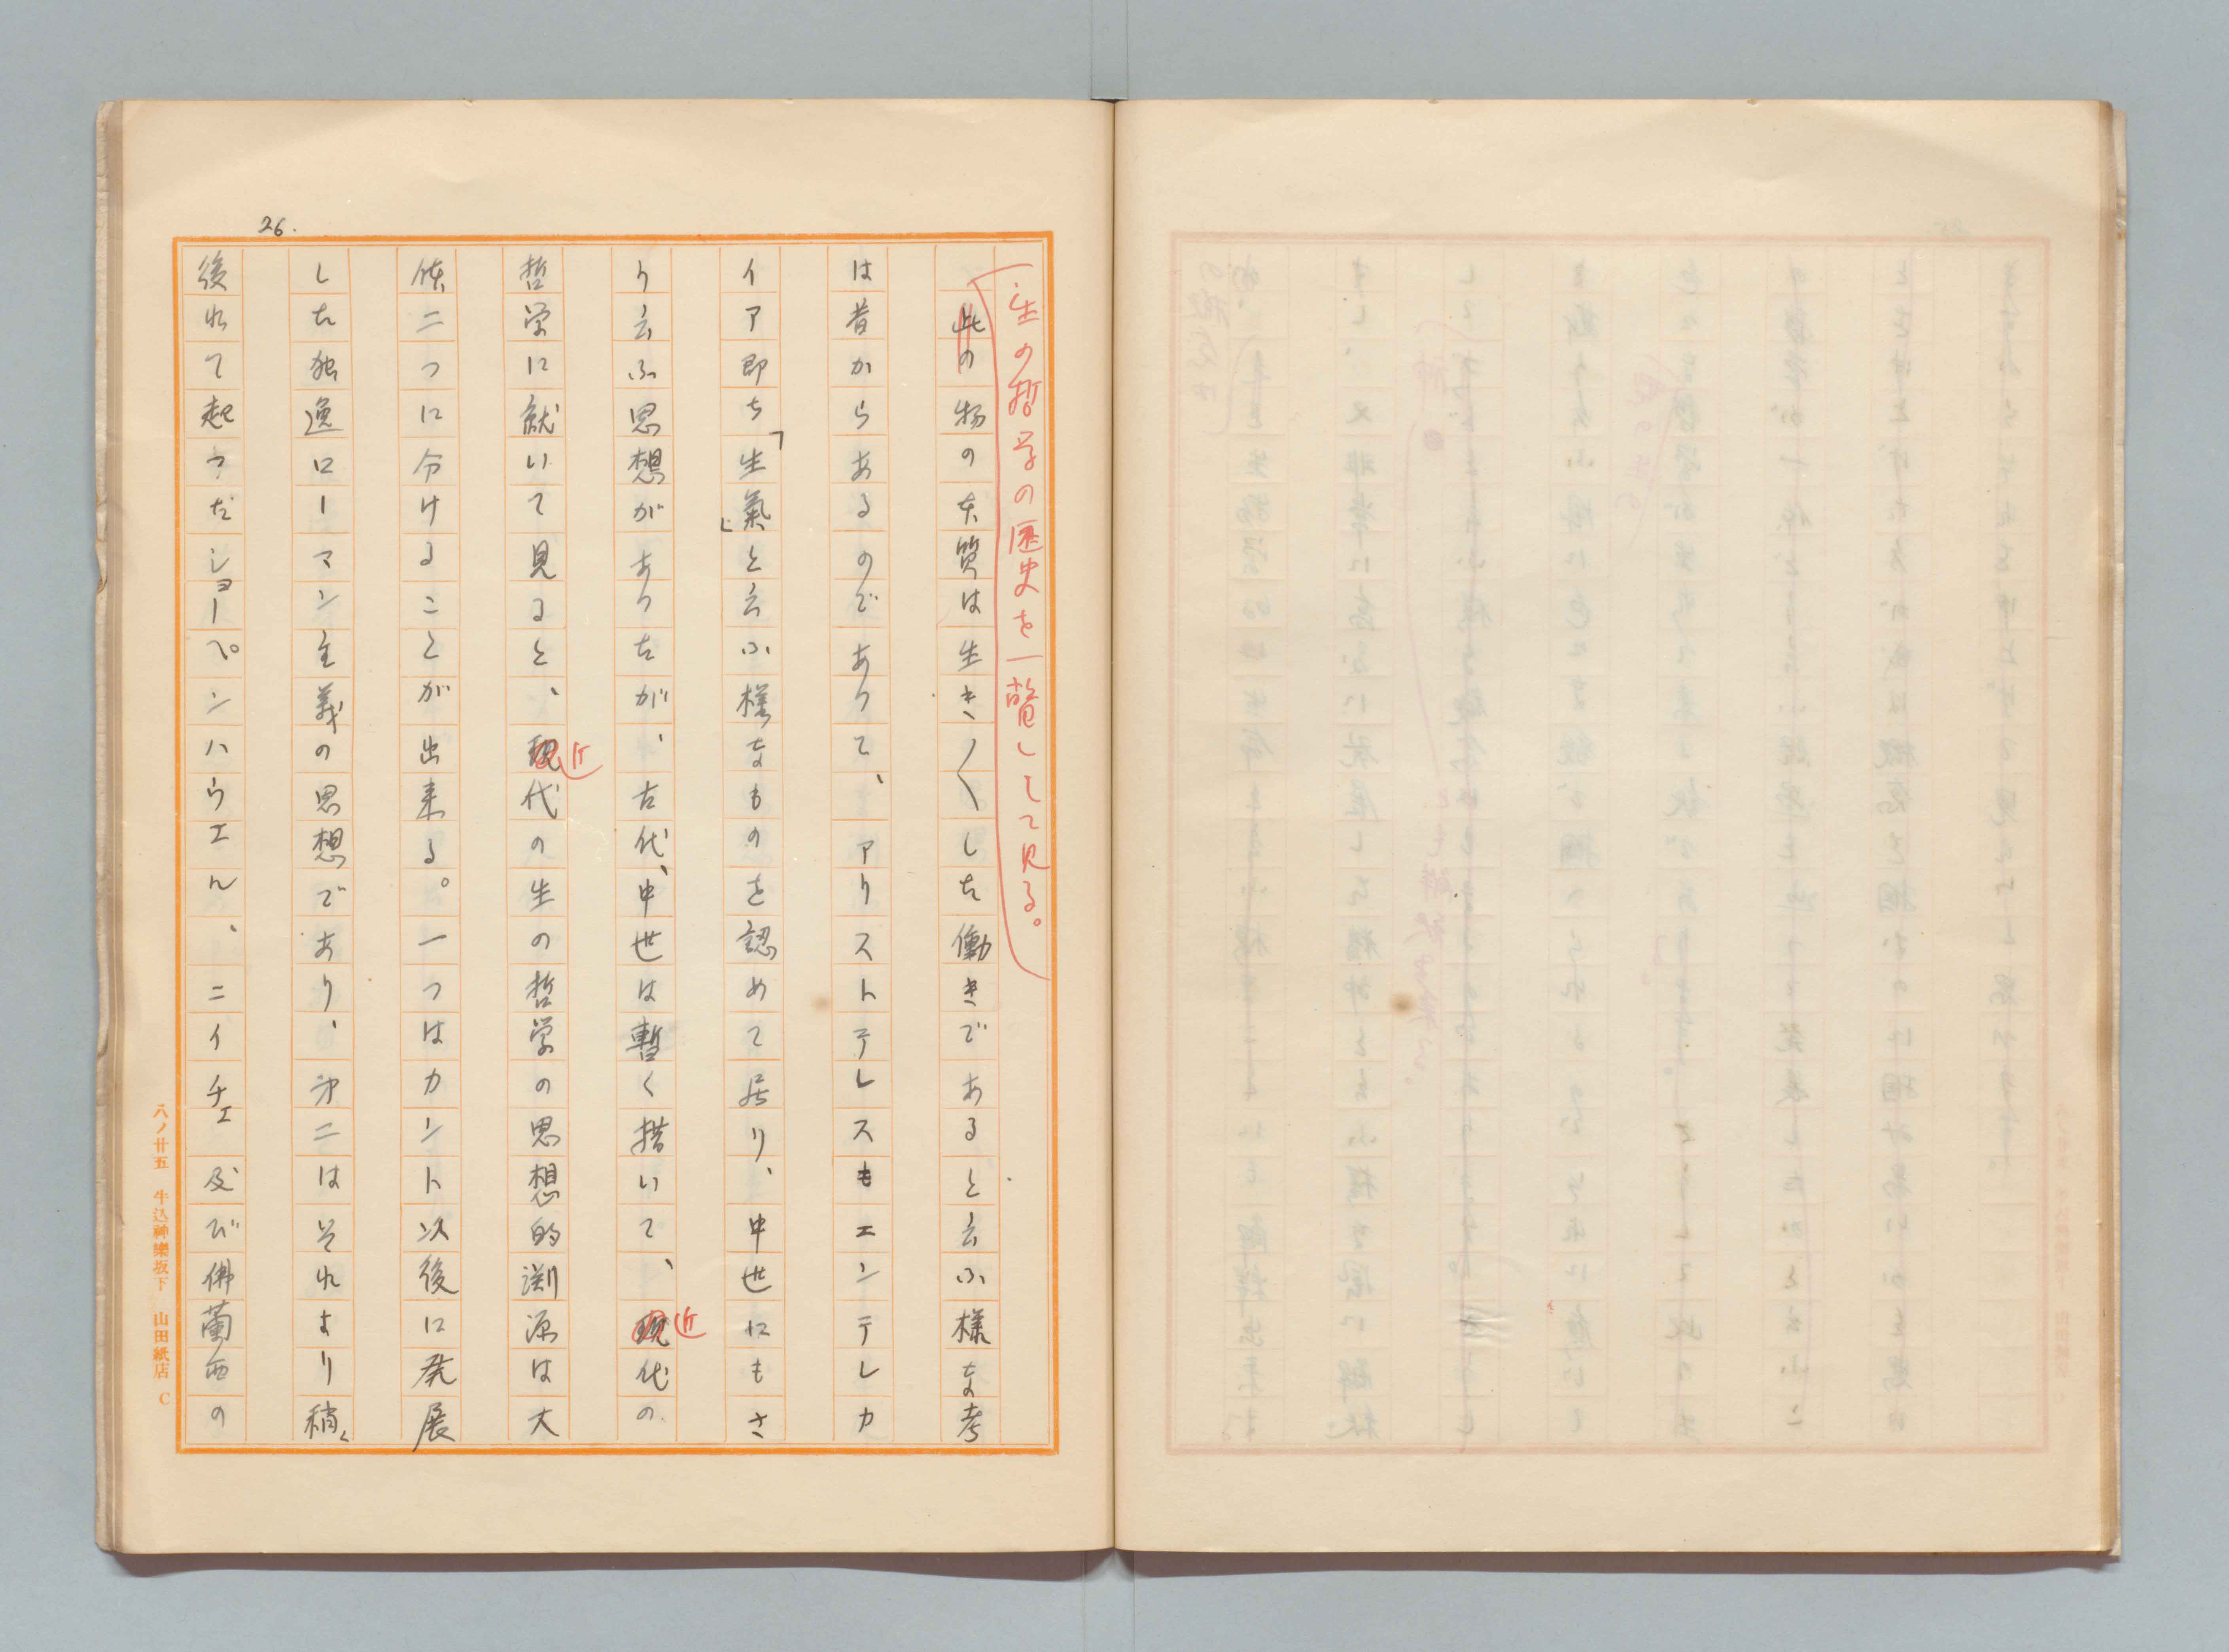 26.
生の哲学の歴史を一瞥してて見る。
此の物の本質は生き〳〵した働きであると云ふ様な考
は昔からあるのでありて、アリストテレスもエンテレカ
イア即ち「生氣」と云ふ様なものを認めて居り、中世にもさ
う云ふ思想がありたが、古代、中世は暫く措いて、現近代の
哲学に就いて見ると、現近代の生の哲学の思想的渊源は大
体二つに分けることが出来る。一つはカント以後に発展
した独逸ローマン主義の思想であり、第二はそれより稍〻
後れて起つたショーペンハウエル、ニイチェ及び佛蘭西の
八ノ廿五 牛込神樂坂下 山田紙店 C